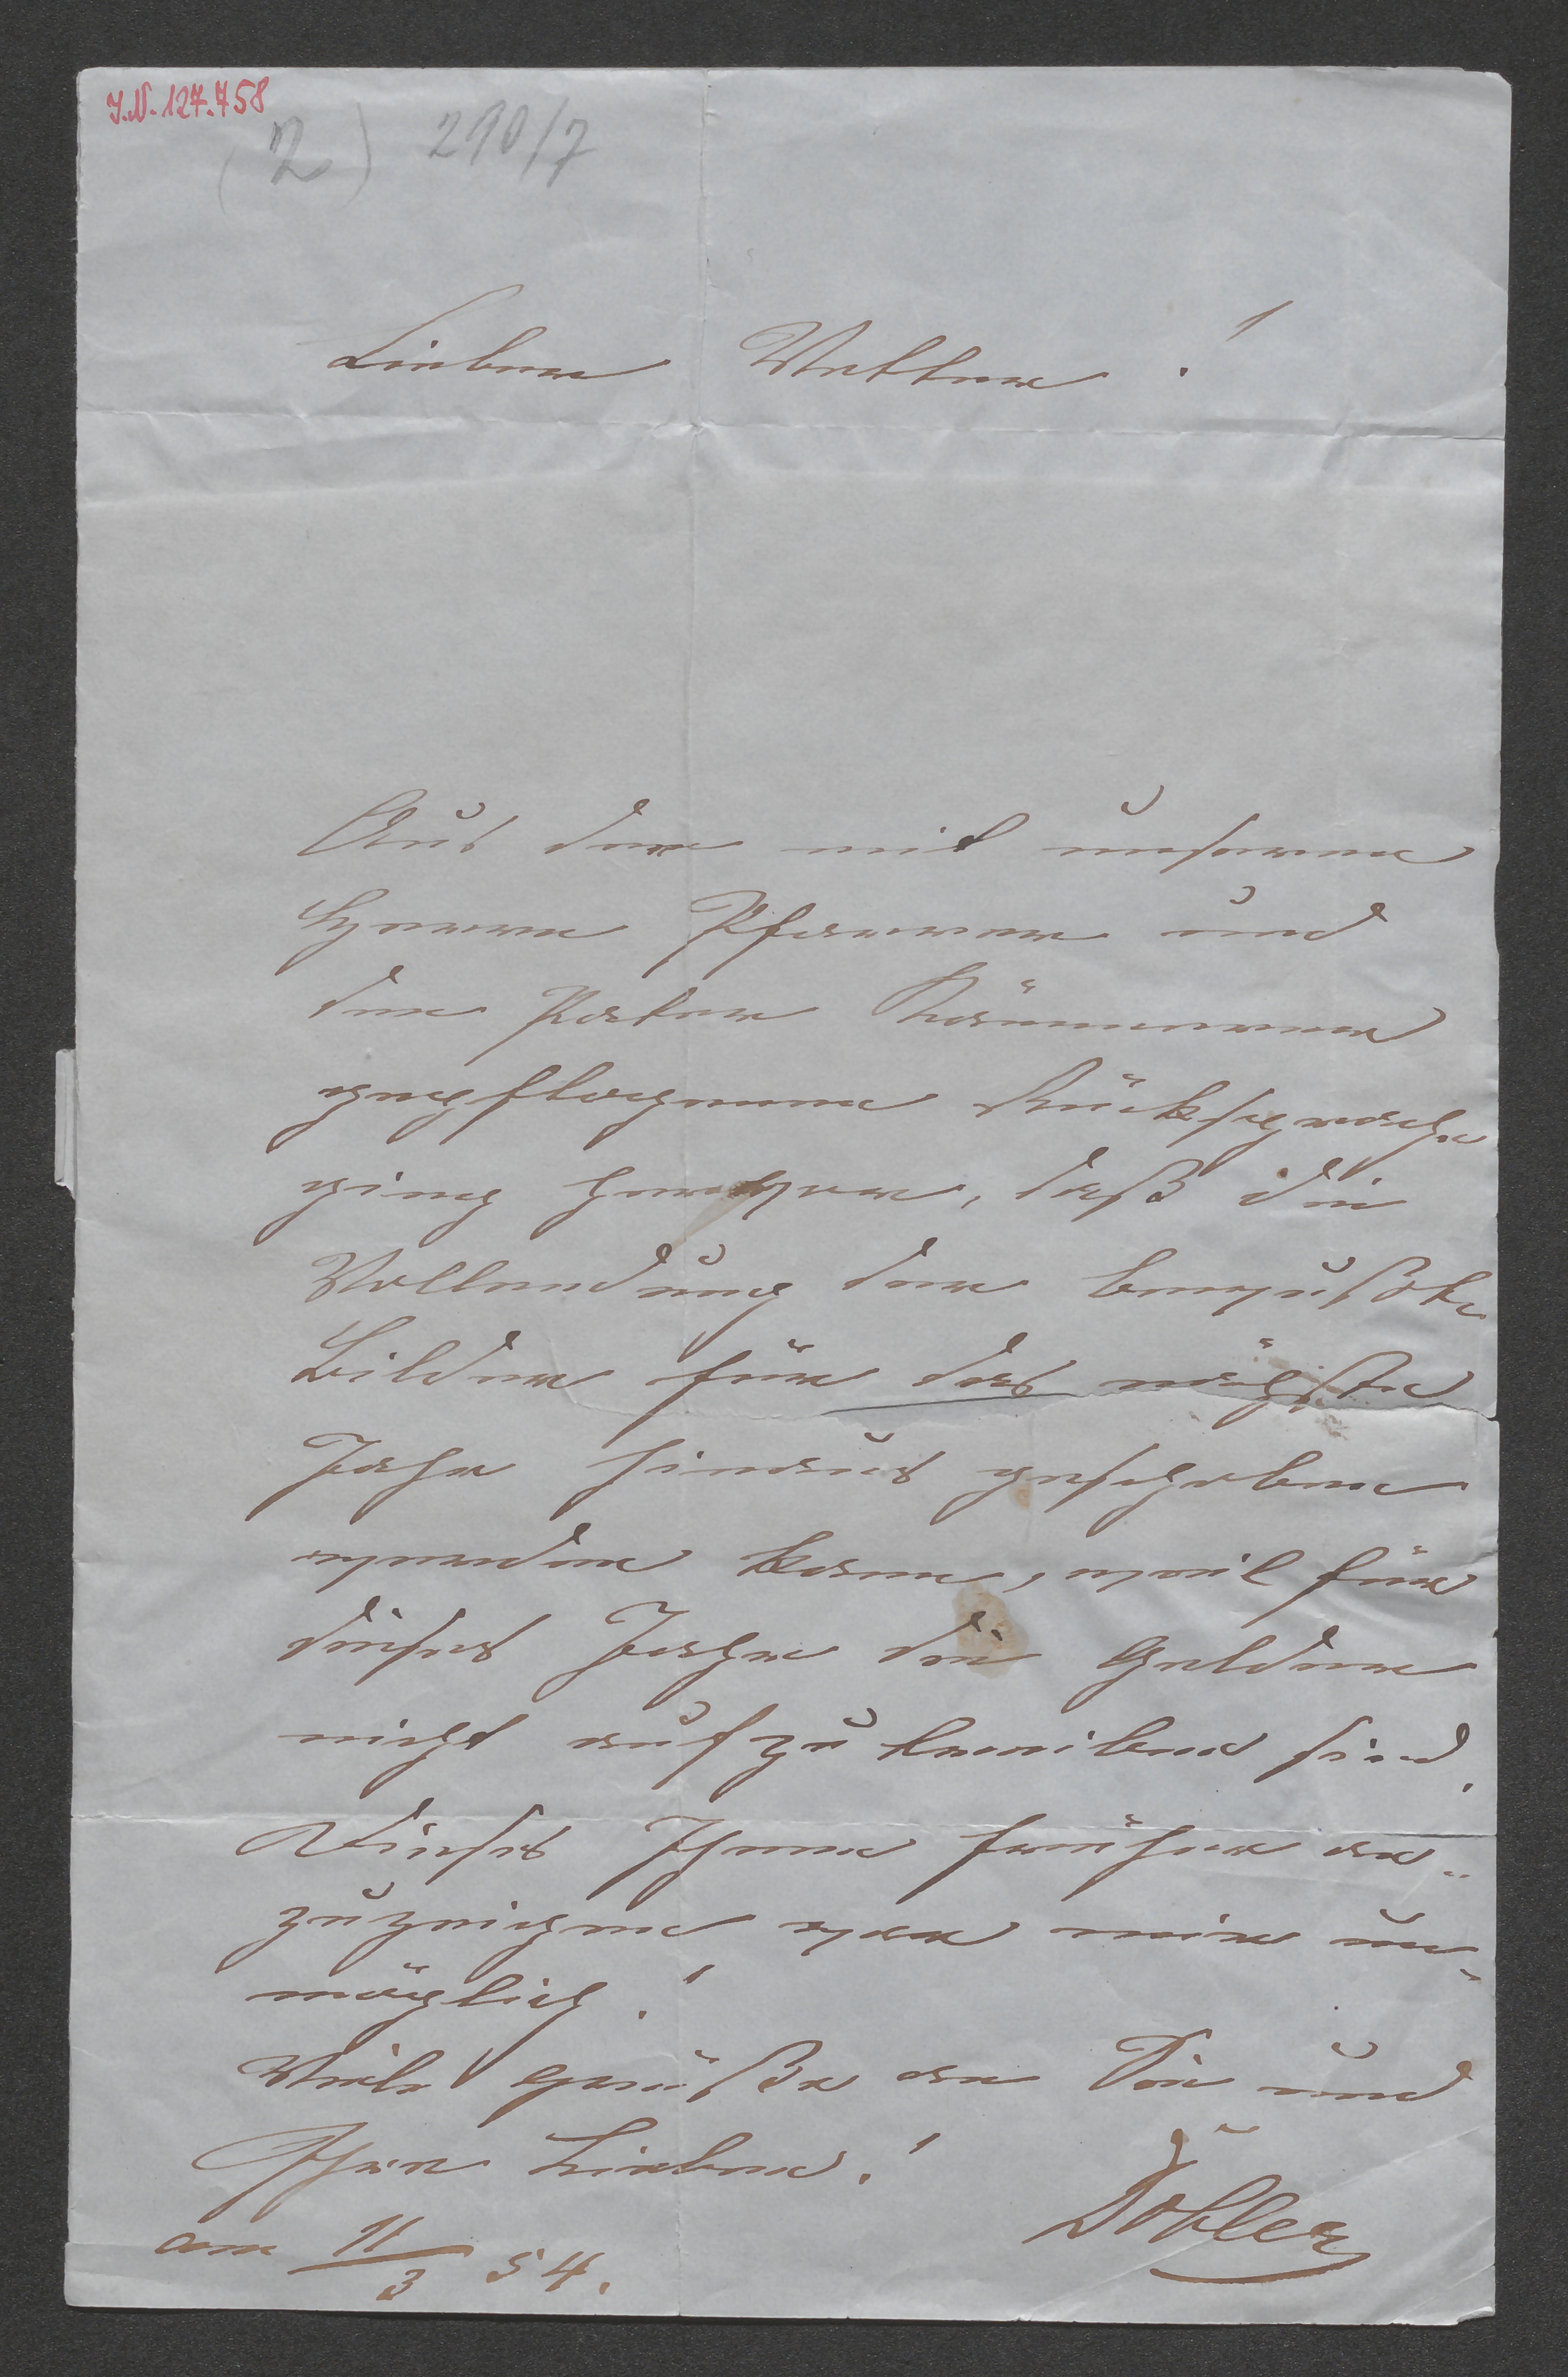 I.N. 127.758
(2) 290/7
Lieber Vetter!
Aus der mit unserem
Herrn Pfarrer und
dem Pater Kämmerer
gepflogenen Rücksprache
ging hervor, daß die
Vollendung der bewußten
Bilder für das nächste
Jahr hinaus geschoben
werden kann, weil für
dieses Jahr die Gelder
nicht aufzutreiben sind.
Dieses Ihnen früher an-
zuzeigen war mir un-
möglich!
Viele Grüße an Sie und
Ihre Lieben!
Döbler
am 11/3 54.